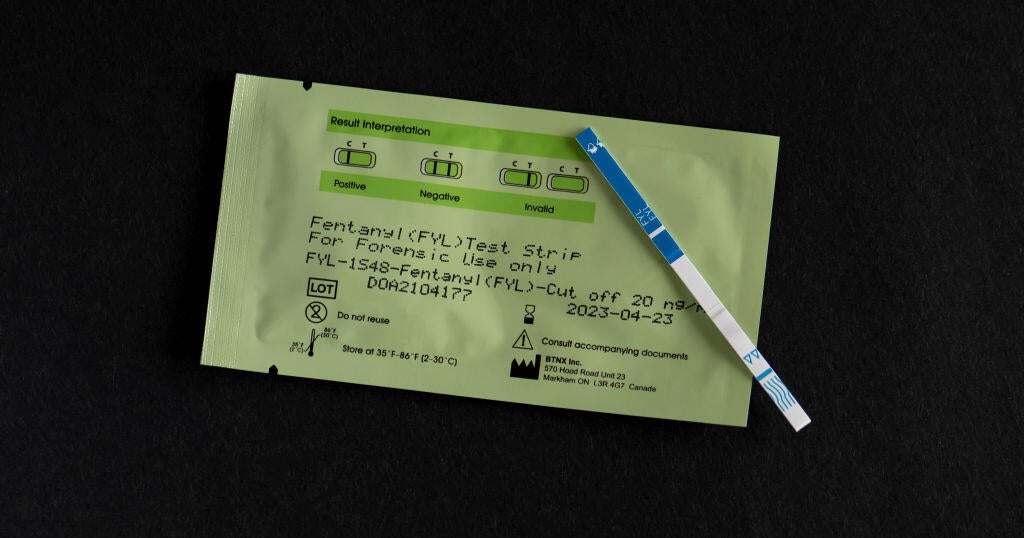 Result Interpretation
C T
C T
C T
C T
Positive
Negative
Invalid
Fentanyl(FYL)Test Strip
For Forensic Use only
FYL-1548-Fentanyl(FYL)-Cut off 20 ng/
LOT
DOA2104177
2023-04-23
Do not reuse
Consult accompanying documents
86°F
(30°C)
35°F
(2°C)
Store at 35°F-86°F (2-30°C)
BTNX Inc.
570 Hood Road Unit 23
Markham ON L3R 4G7 Canada
FYL
FYL